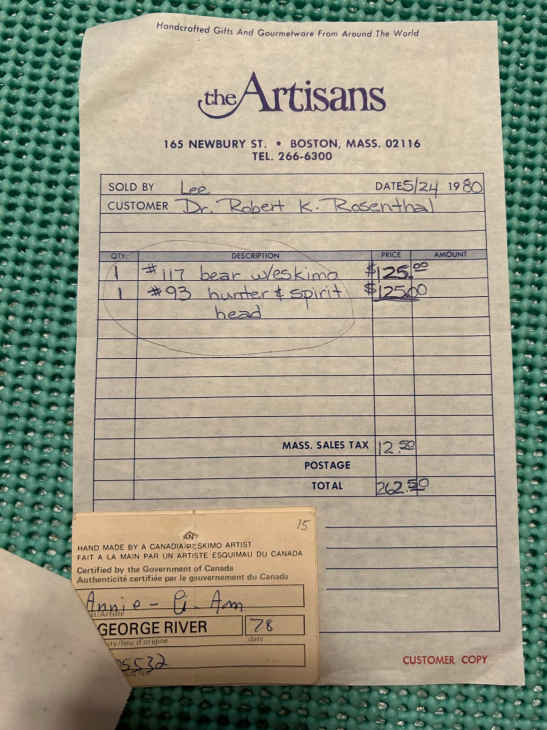 Handcrafted Gifts And Gourmetware From Around The World
the Artisans
165 NEWBURY ST. • BOSTON, MASS. 02116
TEL. 266-6300
SOLD BY Lee DATE 5/24 1980
CUSTOMER Dr. Robert K. Rosenthal
QTY. DESCRIPTION PRICE AMOUNT
1 #117 bear w/eskimo $125.00
1 #93 hunter & spirit $125.00
head
MASS. SALES TAX 12.50
POSTAGE
TOTAL 262.50
15
HAND MADE BY A CANADIAN ESKIMO ARTIST
FAIT A LA MAIN PAR UN ARTISTE ESQUIMAU DU CANADA
Certified by the Government of Canada
Authenticité certifiée par le gouvernement du Canada
Annie - G. Am
GEORGE RIVER 78
date
5532
CUSTOMER COPY